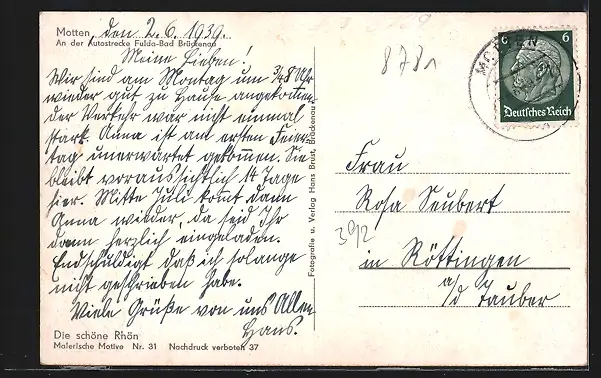 Motten, den 2.6.1939.
An der Autostrecke Fulda-Bad Brückenau
Meine Lieben!
Wir sind am Montag um ¾8 Uhr
wieder gut zu Hause angekommen
der Verkehr war nicht einmal
stark. Anna ist am ersten Feier-
tag unerwartet gekommen. Sie
bleibt voraussichtlich 14 Tage
hier. Mitte Juli kommt dann
Anna wieder, da seid Ihr
dann herzlich eingeladen.
Endschuldigt daß ich solange
nicht geschrieben habe.
Viele Grüße von uns Allen
Hans.
Die schöne Rhön
Malerische Motive Nr. 31 Nachdruck verboten 37
Fotografie u. Verlag Hans Brust, Brückenau
8781
6
Deutsches Reich
MOTTEN
Frau
Rosa Seubert
392
in Röttingen
a/d Tauber